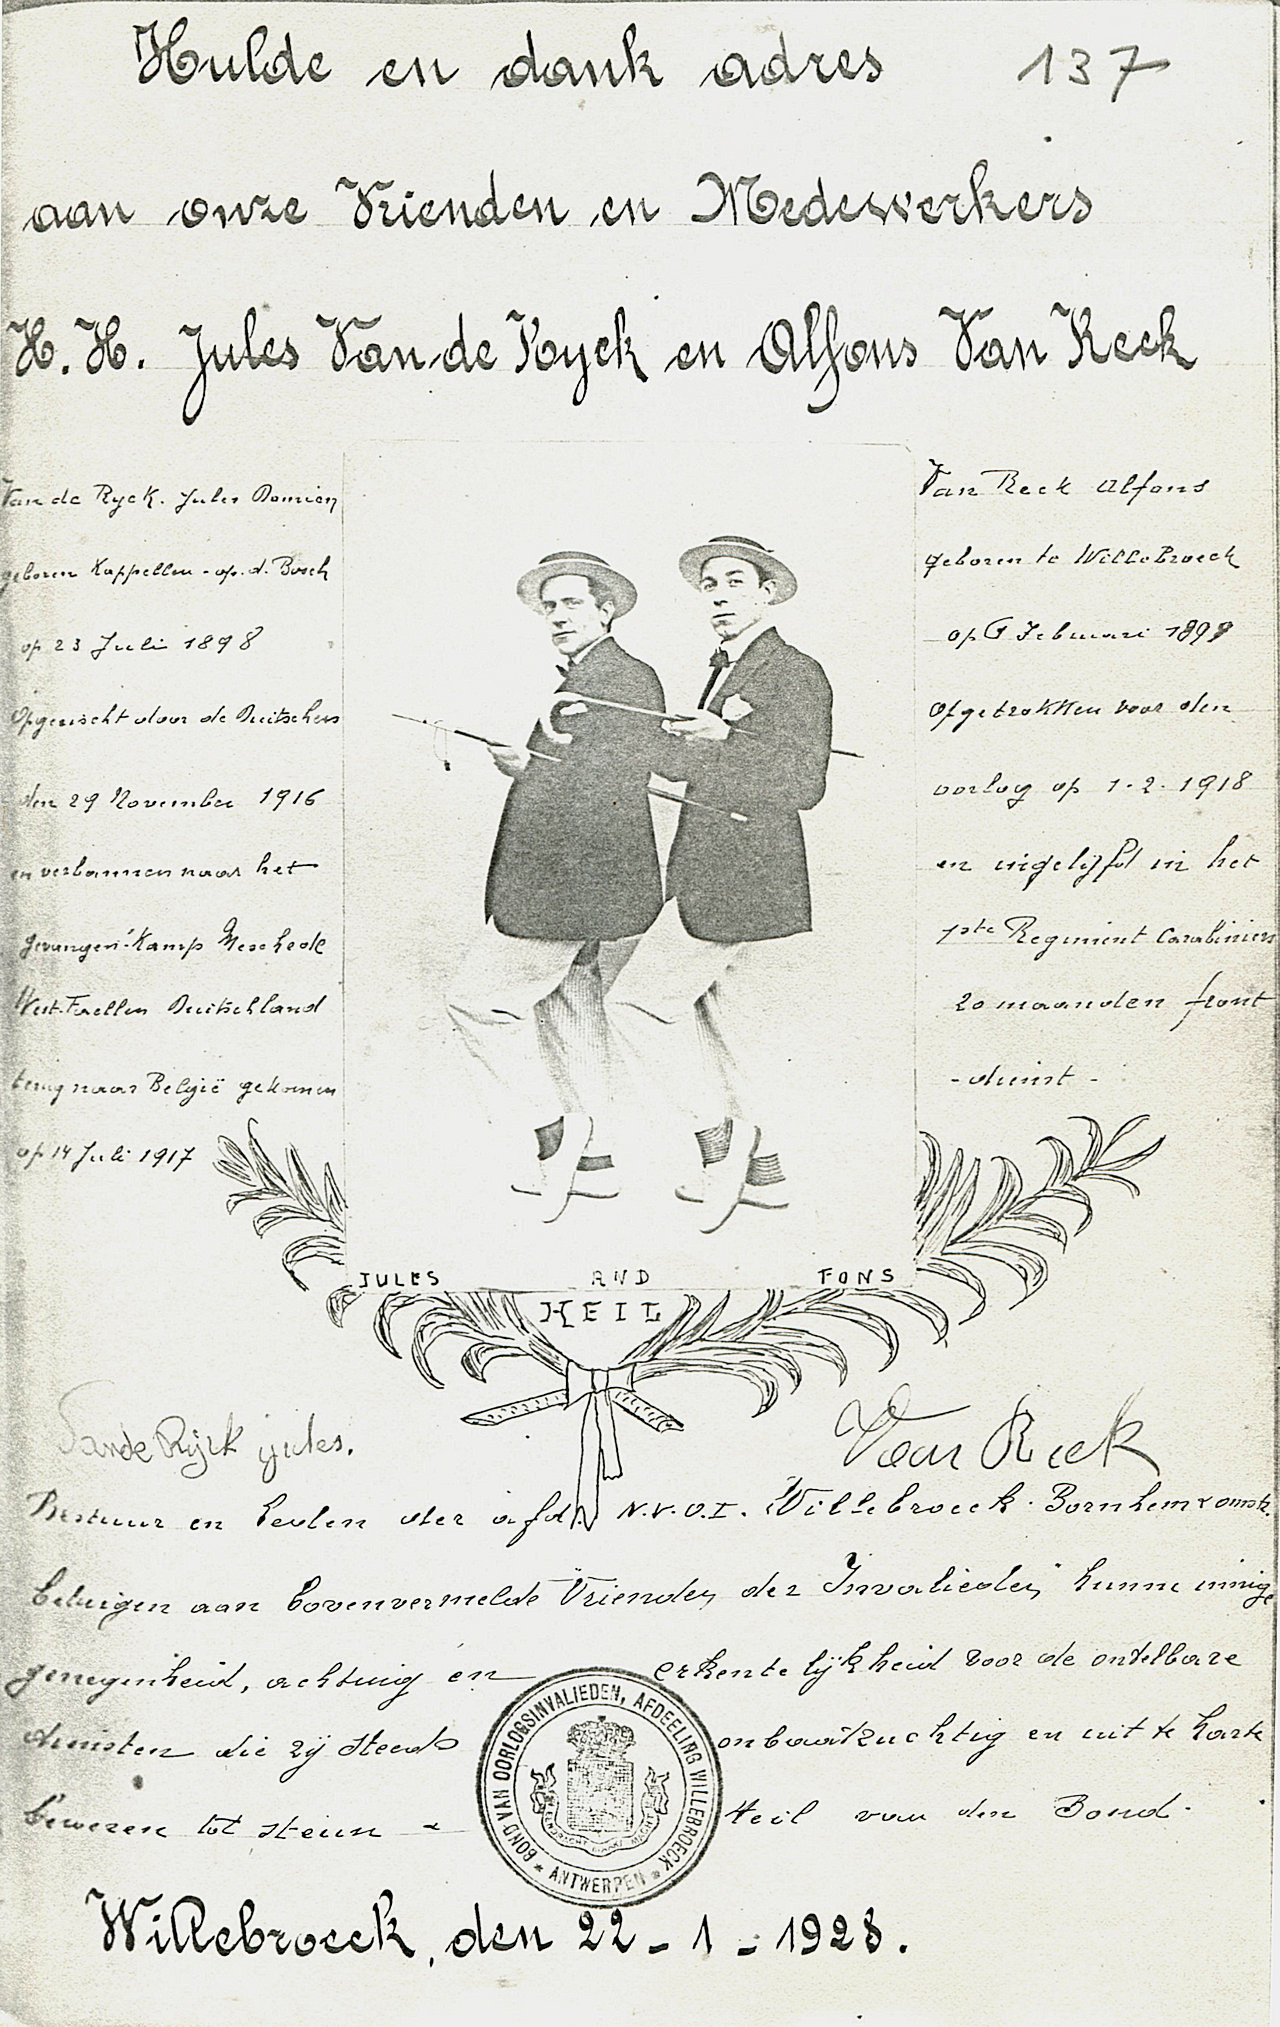 Hulde en dank adres 137
aan onze Vrienden en Medewerkers
H. H. Jules Van de Ryck en Alfons Van Reek
Van de Ryck. Jules Damien
geboren Kappellen-op-d. Bosch
op 23 Juli 1898
Opgeëischt door de Duitschers
den 29 November 1916
en verbannen naar het
gevangen-Kamp Meschede
West-Faellen Duitschland
terug naar België gekomen
op 14 Juli 1917
Van Reek Alfons
geboren te Willebroeck
op Februari 1899
opgetrokken voor den
oorlog op 1-2-1918
en ingelijfd in het
1ste Regiment Carabiniers
20 maanden front
- dienst -
JULES AND FONS
HEIL
Van de Rijck jules.
Van Reek
Bestuur en leden der afd. N.V.O.I. Willebroeck-Bornhem & omstr.
betuigen aan bovenvermelde "Vrienden der Invalieden" hunne innige
genegenheid, achting en erkentelijkheid voor de ontelbare
diensten die zij steeds onbaatzuchtig en uit te harte
bewezen tot steun & Heil van den Bond.
BOND VAN OORLOGSINVALIEDEN, AFDEELING WILLEBROECK
* ANTWERPEN *
EENDRACHT MAAKT MACHT
Willebroeck, den 22-1-1928.